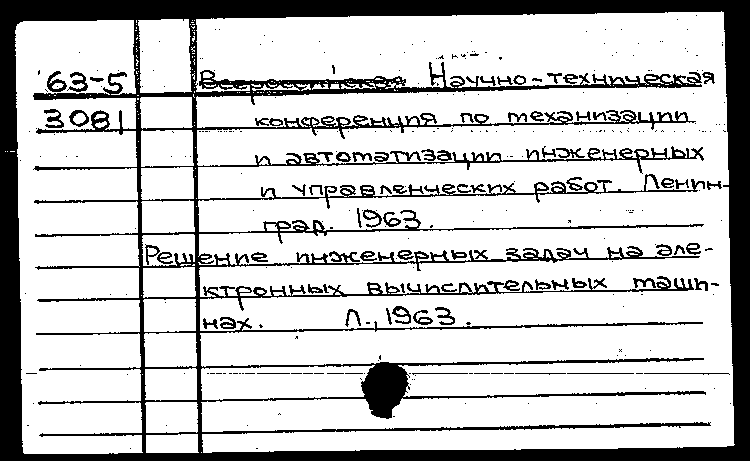 63-5 Всероссийская Научно-техническая
3081 конференция по механизации
и автоматизации инженерных
и управленческих работ. Ленин-
град. 1963.
Решение инженерных задач на эле-
ктронных вычислительных маши-
нах. Л., 1963.